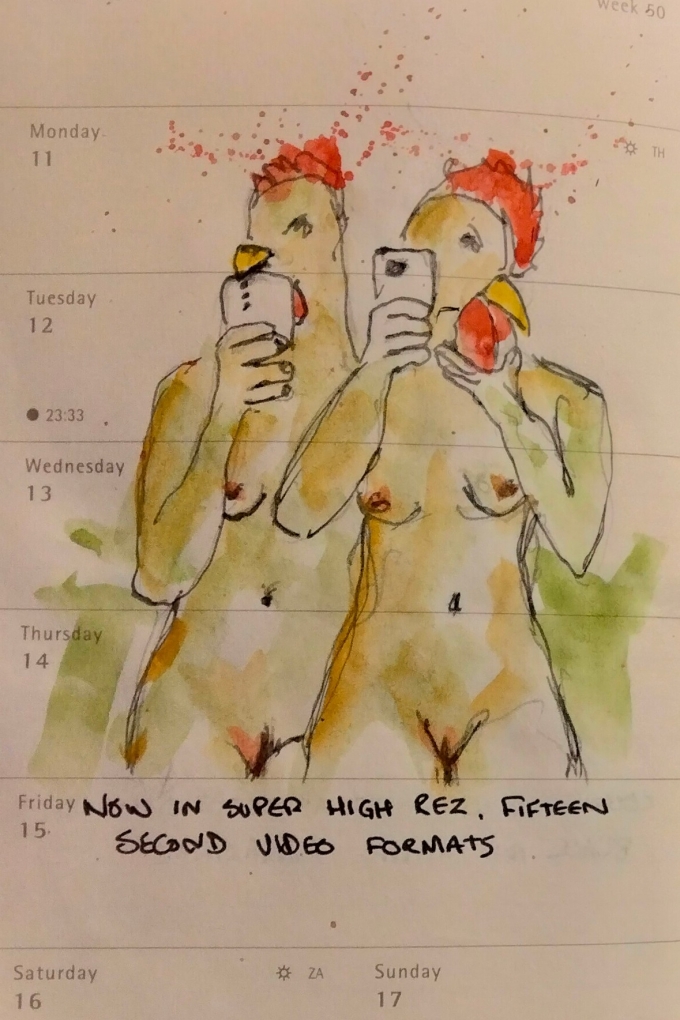 week 50
Monday
11
TH
Tuesday
12
23:33
Wednesday
13
Thursday
14
Friday
15
NOW IN SUPER HIGH REZ. FIFTEEN
SECOND VIDEO FORMATS
Saturday
16
ZA
Sunday
17